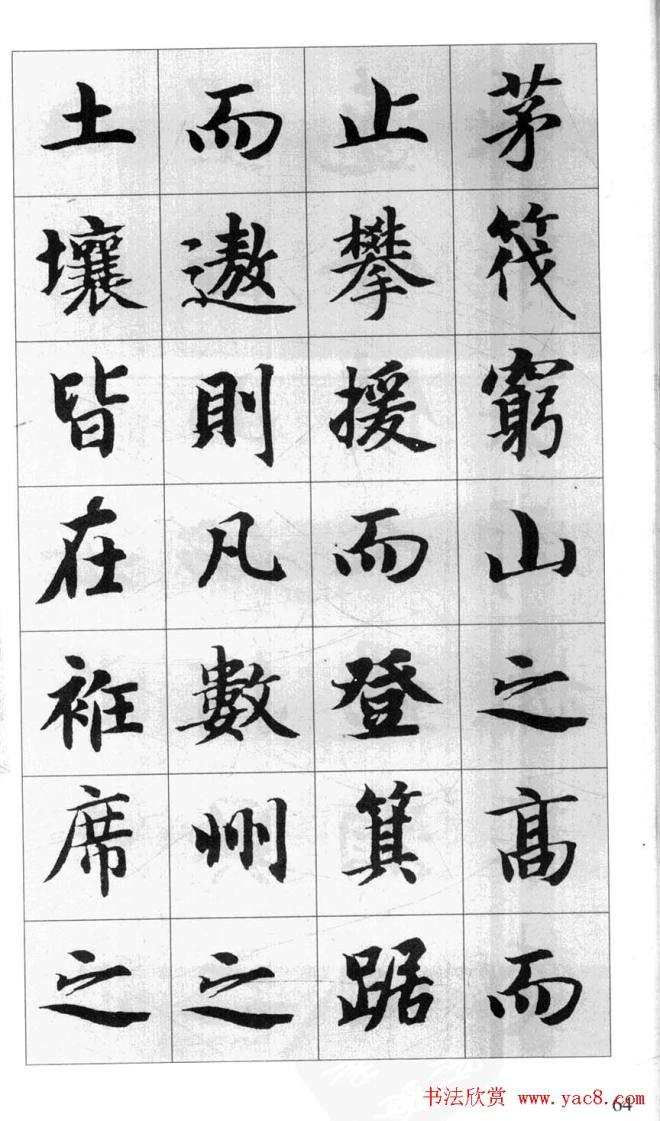 茅筏窮山之高而
止攀援而登箕踞
而遨則凡數州之
土壤皆在袵席之
书法欣赏 www.yac8.com
64